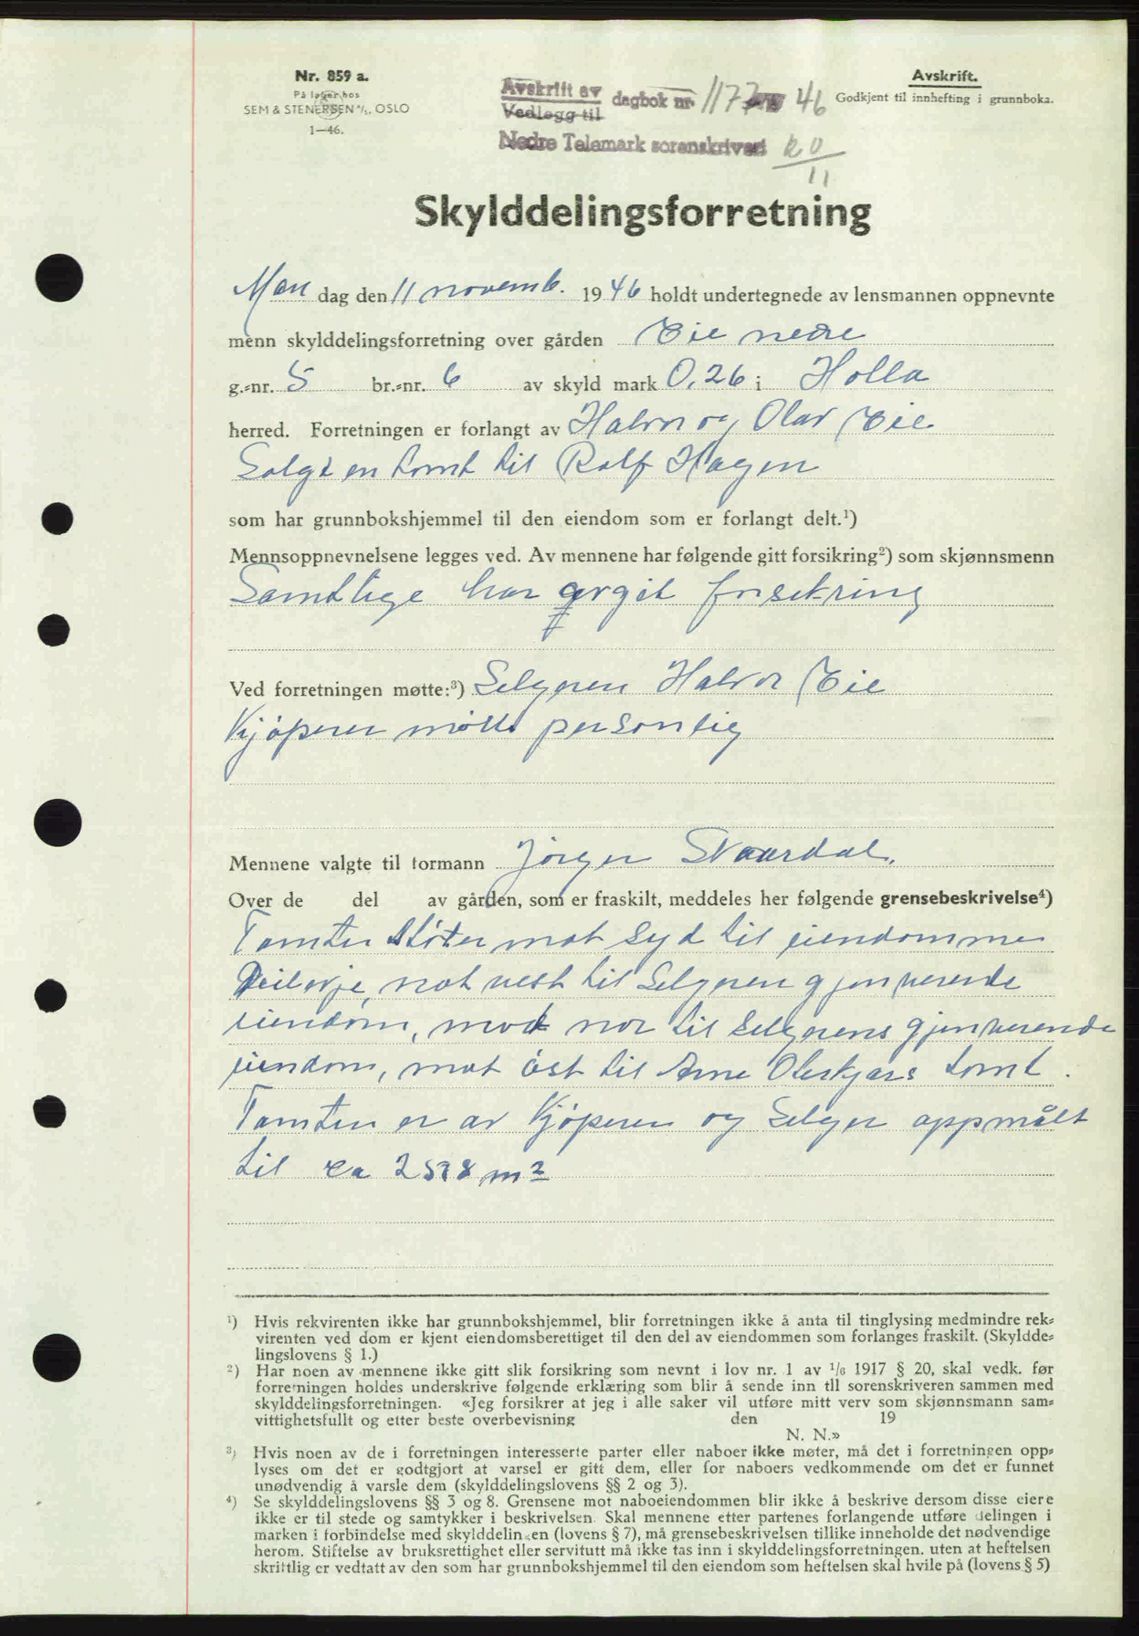 Nr. 859 a.
På lager hos
SEM & STENERSEN A/S. OSLO
1—46.
Avskrift av
Vedlegg til
dagbok nr. 1177 46
Nedre Telemark sorenskriveri 20/11
Avskrift.
Godkjent til innhefting i grunnboka.
Skylddelingsforretning
Man dag den 11 novemb. 1946 holdt undertegnede av lensmannen oppnevnte
menn skylddelingsforretning over gården Eie nedre
g.-nr. 5 br.-nr. 6 av skyld mark 0,26 i Holla
herred. Forretningen er forlangt av Halvor og Olav Eie
Solgt en tomt til Rolf Hagen
som har grunnbokshjemmel til den eiendom som er forlangt delt.¹)
Mennsoppnevnelsene legges ved. Av mennene har følgende gitt forsikring²) som skjønnsmenn
Samtlige har avgit forsikring
Ved forretningen møtte:³) Selgeren Halvor Eie
Kjöperen mötte personlig
Mennene valgte til formann Jörgen Svaardal.
Over de del av gården, som er fraskilt, meddeles her følgende grensebeskrivelse⁴)
Tomten stöter mot syd til eiendommen
mot vest til Selgeren gjenverende
eiendom, mot nor til Selgerens gjenverende
eiendom, mot öst til Arne tomt.
Tomten er av Kjöperen og Selger oppmålt
til ca 2578 m²
¹) Hvis rekvirenten ikke har grunnbokshjemmel, blir forretningen ikke å anta til tinglysing medmindre rek-
virenten ved dom er kjent eiendomsberettiget til den del av eiendommen som forlanges fraskilt. (Skyldde-
lingslovens § 1.)
²) Har noen av mennene ikke gitt slik forsikring som nevnt i lov nr. 1 av 1/6 1917 § 20, skal vedk. før
forretningen holdes underskrive følgende erklæring som blir å sende inn til sorenskriveren sammen med
skylddelingsforretningen. «Jeg forsikrer at jeg i alle saker vil utføre mitt verv som skjønnsmann sam-
vittighetsfullt og etter beste overbevisning den 19
N. N.»
³) Hvis noen av de i forretningen interesserte parter eller naboer ikke møter, må det i forretningen opp-
lyses om det er godtgjort at varsel er gitt dem, eller for naboers vedkommende om det er funnet
unødvendig å varsle dem (skylddelingslovens §§ 2 og 3).
⁴) Se skylddelingslovens §§ 3 og 8. Grensene mot naboeiendommen blir ikke å beskrive dersom disse eiere
ikke er til stede og samtykker i beskrivelsen. Skal mennene etter partenes forlangende utføre delingen i
marken i forbindelse med skylddelingen (lovens § 7), må grensebeskrivelsen tillike inneholde det nødvendige
herom. Stiftelse av bruksrettighet eller servitutt må ikke tas inn i skylddelingsforretningen. uten at heftelsen
skriftlig er vedtatt av den som har grunnbokshjemmel til den eiendom som heftelsen skal hvile på (lovens § 5)